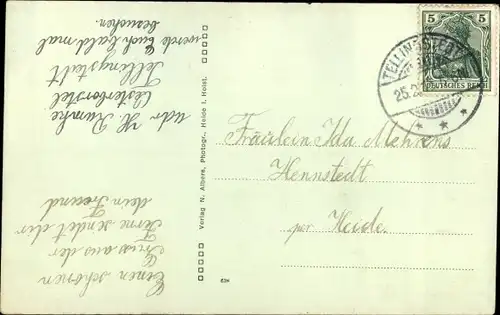 Einen schönen
Gruss aus der
Ferne sendet der
dein Freund
adr. H. Rumke
Osterborstel
Tellingstedt
werde Euch bald mal
besuchen.
Verlag N. Albers, Photogr., Heide i. Holst.
5 5
DEUTSCHES REICH
TELLINGSTEDT
25.2
Fräulein Ida Mehrens
Hennstedt
per Heide.